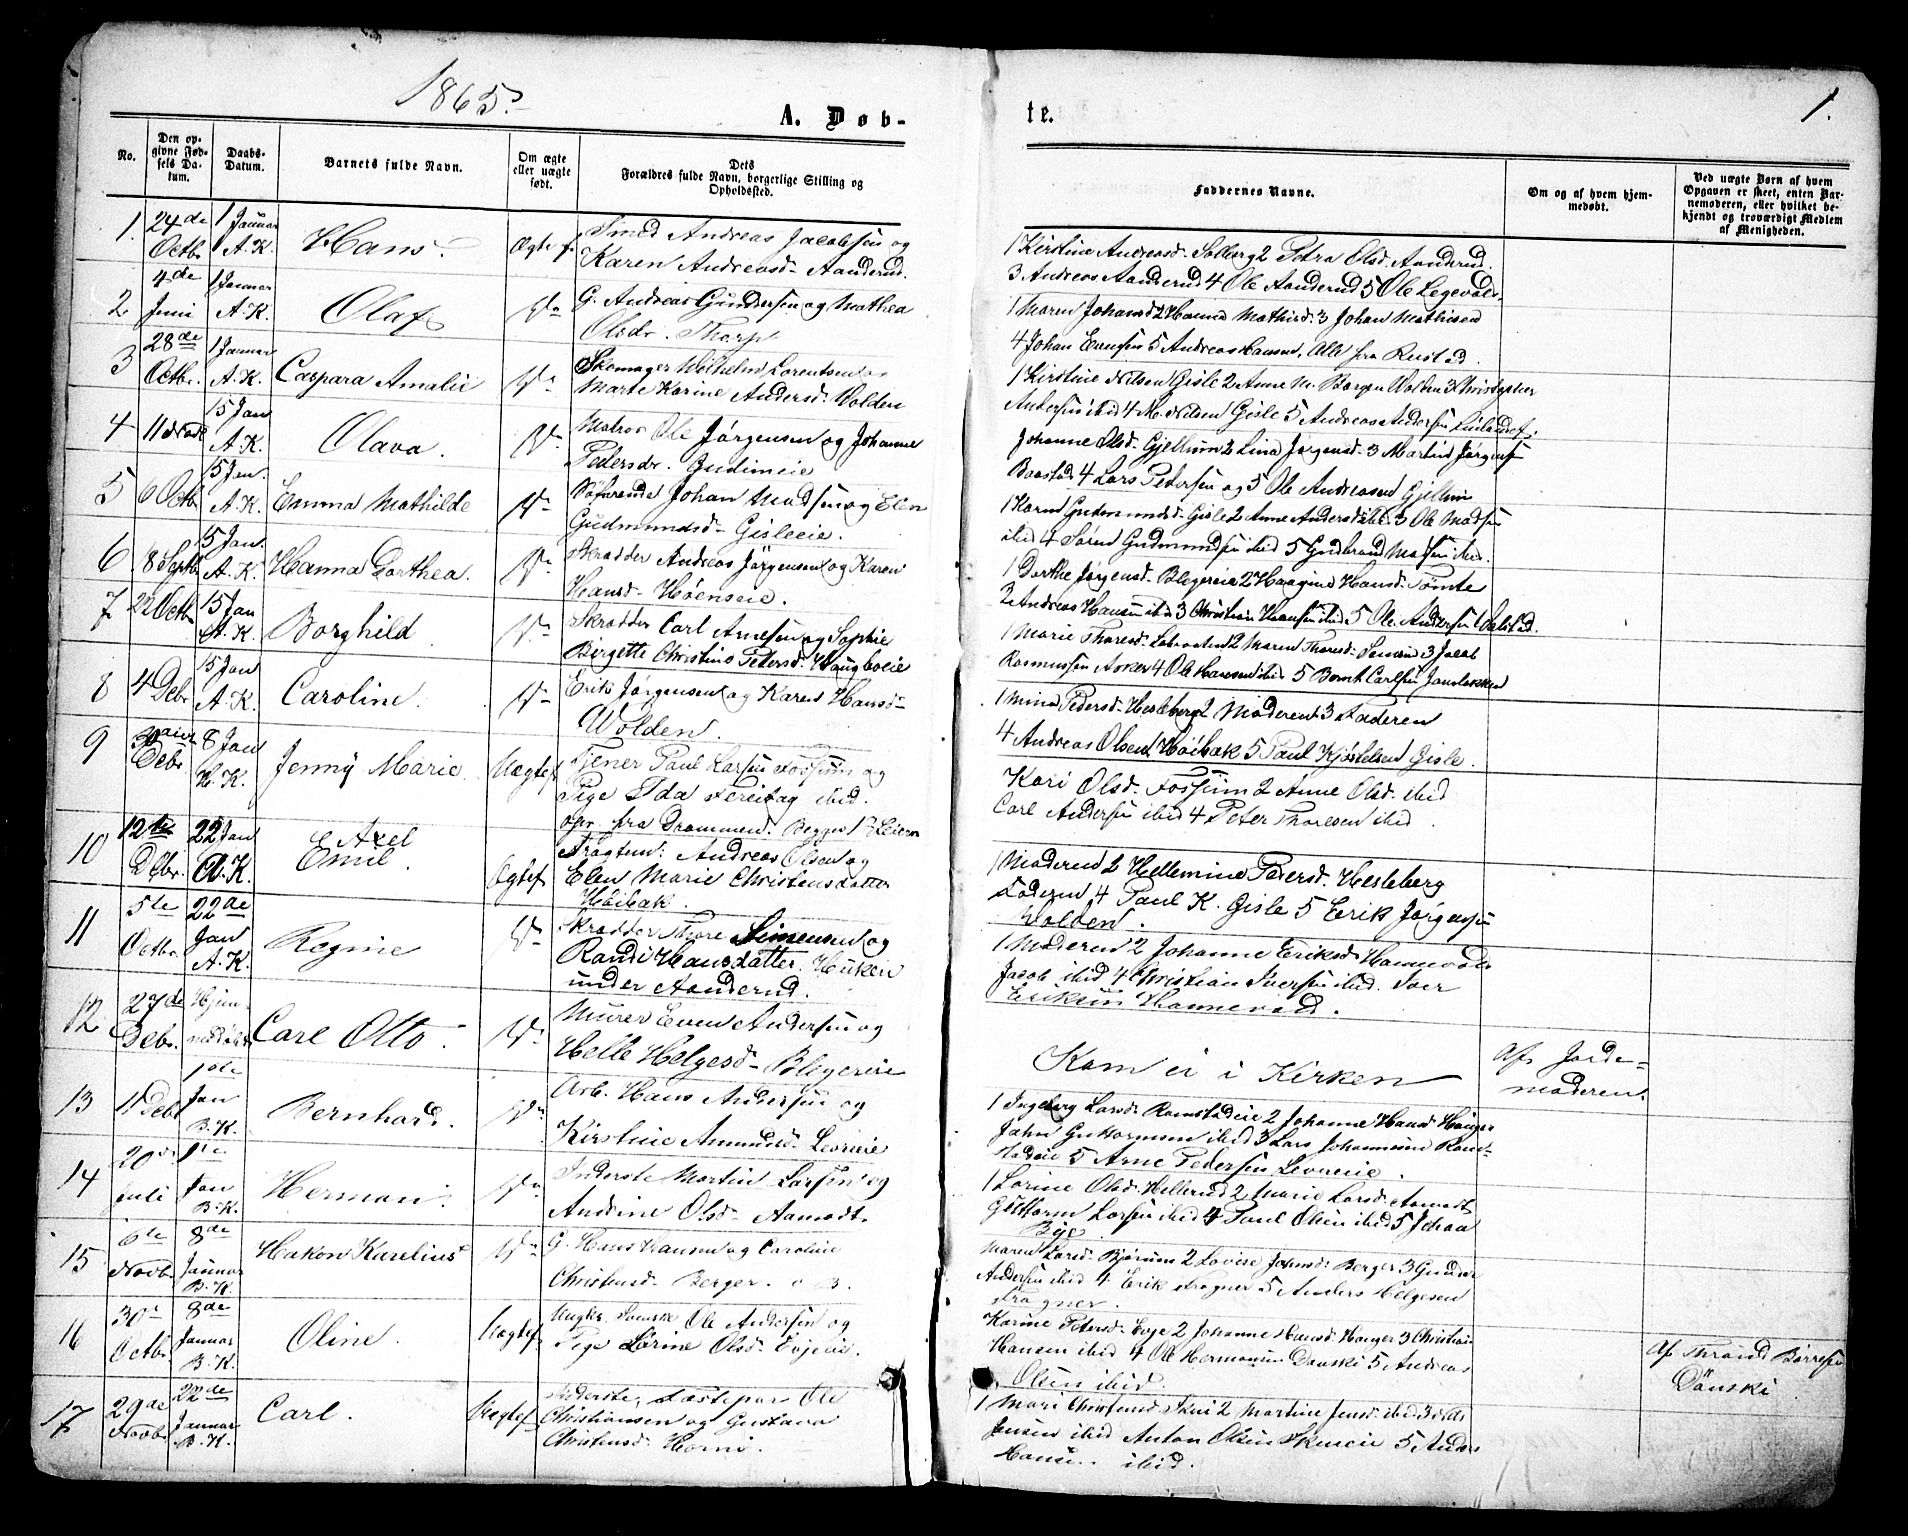 1865.
A. Døb-
te.
1.
No.
Den op-
givne Fød-
sels Da-
tum.
Daabs-
Datum.
Barnets fulde Navn.
Om ægte
eller uægte
født.
Dets
Forældres fulde Navn, borgerlige Stilling og
Opholdssted.
Faddernes Navne.
Om og af hvem hjem-
medøbt.
Ved uægte Børn af hvem
Opgaven er skeet, enten Bar-
nemoderen, eller hvilket be-
kjendt og troværdigt Medlem
af Menigheden.
1. 24de Octbr 1 Januar A. K. Hans Ægtef
Smed Andreas Jacobsen og
Karen Andreasd. Aanderud.
1 Kirstine Andreasd. Solberg 2 Petra Olsd. Aanderud.
3 Andreas Aanderud 4 Ole Aanderud 5 Ole
2 4de Juni 1 Januar A. K. Olaf
G. Andreas Gundersen og Mathea
Olsdr. Thorp
1 Maren Johansd 2 Hanna Mathisd. 3 Johan Mathisen
4 Johan Evensen 5 Andreas Hansen. Alle fra Rustad.
3 28de Octbr. 1 Januar A. K. Caspara Amalie
Skomager Wilhelm Lorentsen og
Marte Karine Andersd. Wolden
1 Kirstine Nilsen Gisle 2 Anne M. Borgen Wolden 3 Christopher
Andersen ibid 4 M. Nilsen Gisle 5 Andreas Andersen
4 11 Novb 15 Jan A. K. Olava.
Matros Ole Jørgensen og Johanne
Pedersdr.
Johanne Olsd. Gjellum 2 Lina Jørgensd. 3 Martin Jørgens
Baastad 4 Lars Pedersen og 5 Ole Andreasen Gjellum
5 6 Octb 15 Jan. A. K. Emma Mathilde
Søfarende Johan Madsen og Elen
Gudmundsd. Gisleeie.
1 Karen Gudmundsd. Gisle 2 Anne Andersd ibid. 3 Ole Madsen
ibid 4 Søren Gudmundsen ibid 5 Gudbrand Madsen ibid.
6 8 Septb 15 Jan. A. K. Hanna Dorthea.
Skrædder Andreas Jörgensen og Karen
Hansd. Höenseie.
1 Dorthe Jørgensd. Blegereie 2 Haagine Hansd. Tömte
2 Andreas Hansen ibid 3 Christian Hansen ibid 5 Ole Andersen
7 22 Octb 15 Jan A. K. Borghild
Skrædder Carl Arnesen og Sophie
Birgette Christine Petersd. Haugboeie
1 Marie Thoresd. 2 Maren Thoresd. Semsd 3 Jacob
Rasmussen Asker 4 Ole Hansen ibid 5 Bernt Carlsen
8 4 Debr. 15 Jan A. K. Caroline.
Erik Jørgensen og Karen Hansd.
Wolden.
1 Mina Pedersd. Hesleberg 2 Moderen 3 Faderen
4 Andreas Olsen Höibak 5 Paul Kjøstelsen Gisle.
9 Debr 8 Jan H. K. Jenny Marie. Uægtef
Tjener Paul Larsen Fossum og
Pige Ida Freitag ibid.
opr. fra Drammen. Begges 1ste Leierm
Kari Olsd. Fossum 2 Anne Olsd. ibid
Carl Andersen ibid 4 Peter Thoresen ibid.
10 12te Debr. 22 Jan A. K. Axel
Emil. Ægtef
Andreas Olsen og
Elen Marie Christensdatter
Höibak.
1 Moderen 2 Hellemine Pedersd. Hesleberg
Faderen 4 Paul K. Gisle 5 Erik Jørgensen
Wolden.
11 5te Octbr. 22de Jan A. K. Regine
Skrædder Thore Simensen og
Randi Hansdatter.
under Aanderud.
1 Moderen 2 Johanne Eriksd. Hannevold
Jacob ibid 4 Christian Iversen ibid. Iver
Eriksen Hannevold.
12 27de Debr. Hjem-
medøbt Carl Otto
Murer Even Andersen og
Helle Helgesd. Blegereie
Kom ei i Kirken
Af Jorde-
moderen.
13 11 Debr 1ste Jan B. K. Bernhard.
Arb. Hans Andersen og
Kirstine Amundsd. Levreeie
1 Ingeborg Larsd. Ramstadeie 2 Johanne Hansd Hauger
John Guttormsen ibid 3 Lars Johannesen Ram-
stadeie 5 Arne Pedersen Levreeie.
14 20de Juli 1ste Jan B. K. Herman
Inderste Martin Larsen og
Andrine Olsd. Aamodt.
1 Lorine Olsd. Hellerud 2 Marie Larsd. Aamodt
Guttorm Larsen ibid 4 Paul Olsen ibid 5 Johan
Bye
15 6te Novbr 8de Januar B. K. Hakon Karelius
G. Hans Hansen og Caroline
Christensd. Berger.
Maren Larsd. Bjørum 2 Lovise Johnsd. Berger 3 Gunder
Andersen ibid 4 Erik Fragner 5 Anders Helgesen
Fragner.
16 30te Octbr. 8de Januar B. K. Oline. Uægtef
Ungkr. Svensk Ole Andersen og
Pige Lorine Olsd. Evjeeie.
Karine Petersd. Evje 2 Johanne Hansd. Hauger 3 Christian
Hansen ibid 4 Ole Hermansen Danski 5 Andreas
Olsen ibid.
Af Thrond Börresen
Dönski
17 29de Novbr 22de Januar B. K. Carl. Uægtef
Inderste, Fæstepar Ole
Christiansen og Gustava
Christensd. Horni.
1 Mari Christensd Skui 2 Martine Jensd. ibid 3 Nils
Jensen ibid Anton Olsen Skuieie 5 Anders
Hansen ibid.